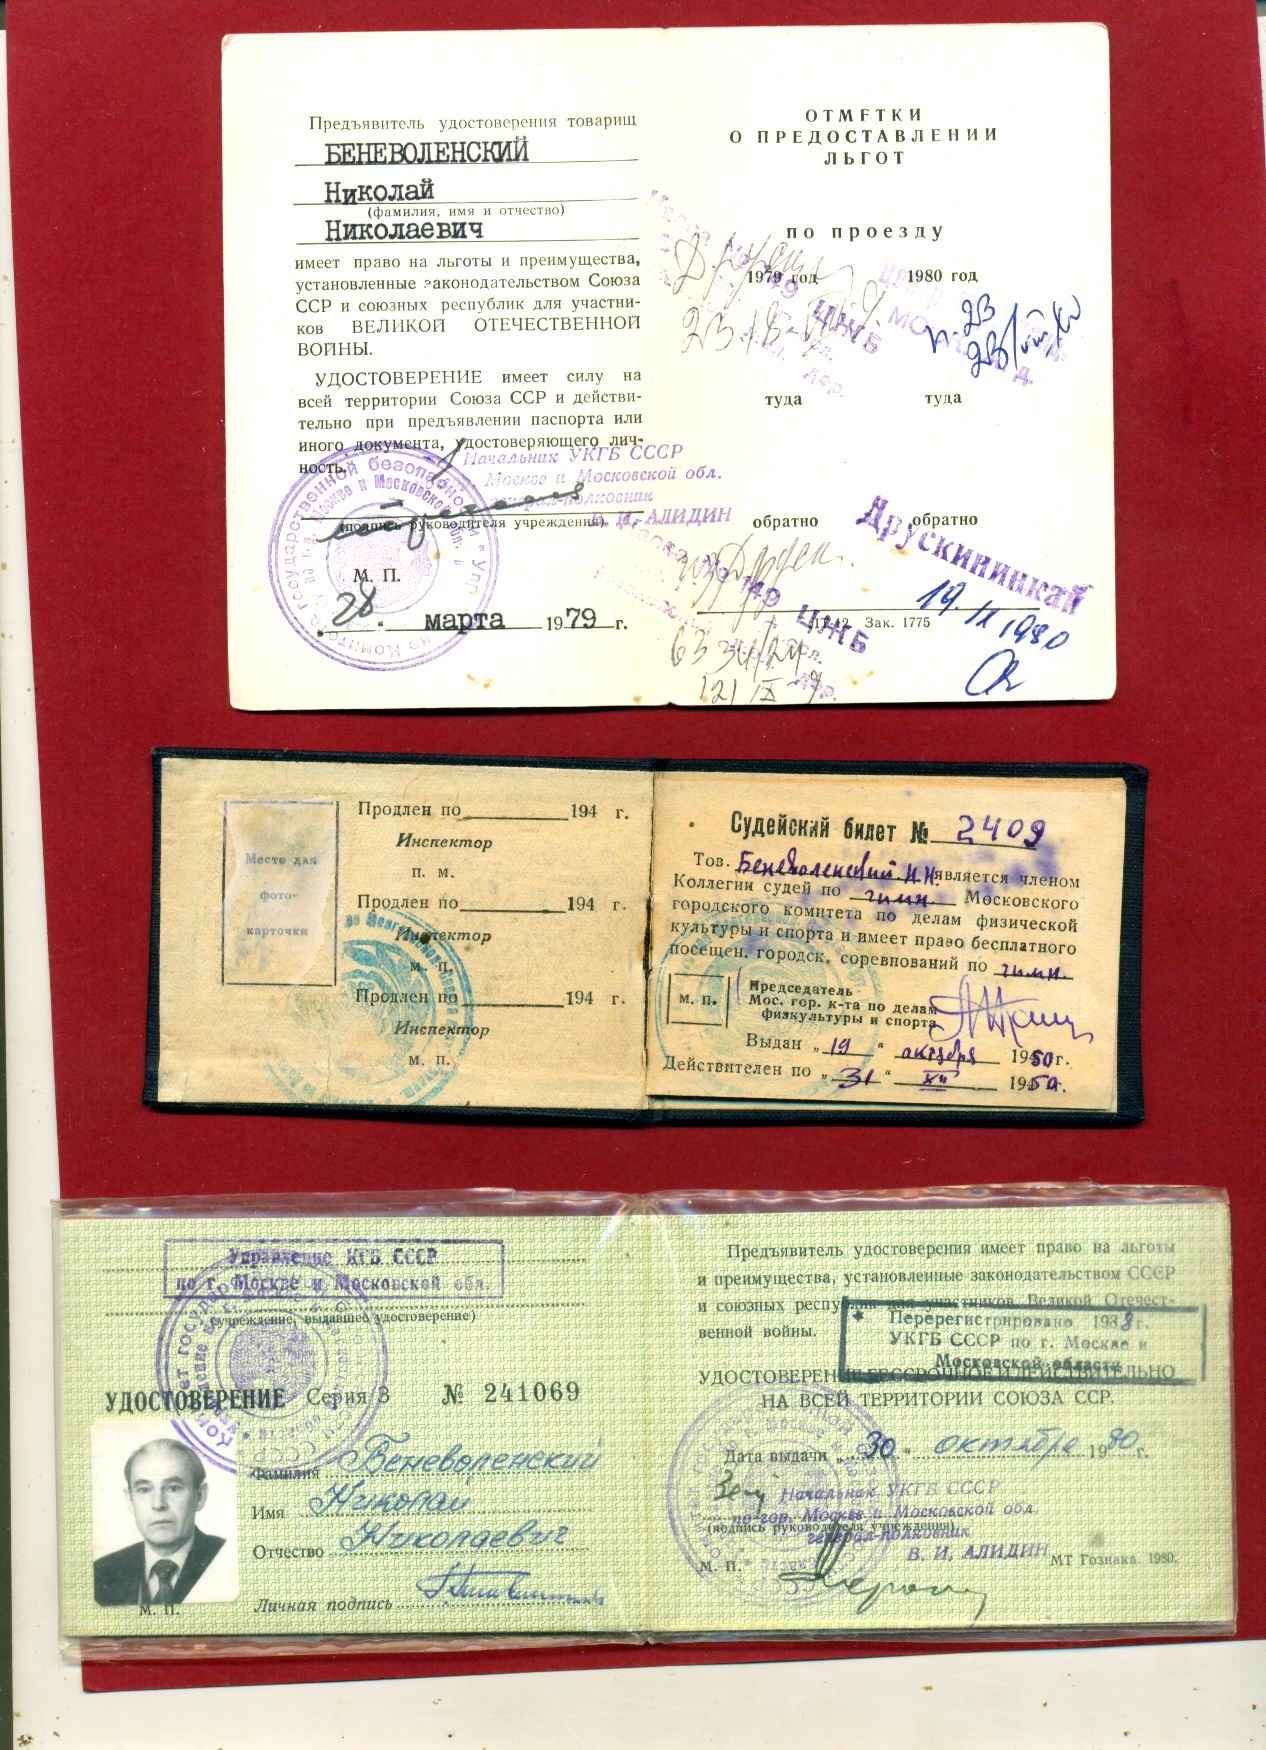 Предъявитель удостоверения товарищ
БЕНЕВОЛЕНСКИЙ
Николай
(фамилия, имя и отчество)
Николаевич
имеет право на льготы и преимущества,
установленные законодательством Союза
ССР и союзных республик для участни-
ков ВЕЛИКОЙ ОТЕЧЕСТВЕННОЙ
ВОЙНЫ.
УДОСТОВЕРЕНИЕ имеет силу на
всей территории Союза ССР и действи-
тельно при предъявлении паспорта или
иного документа, удостоверяющего лич-
ность.
Начальник УКГБ СССР
Москве и Московской обл.
генерал-полковник
В. И. АЛИДИН
(подпись руководителя учреждения)
М. П.
28 марта 1979 г.
ОТМЕТКИ
О ПРЕДОСТАВЛЕНИИ
ЛЬГОТ
по проезду
1979 год 1980 год
149 ЦЖБ
туда туда
обратно обратно
Друскининкай
149 ЦЖБ
19.IX 1980
Зак. 1775
Место для
фото-
карточки
Продлен по 194 г.
Инспектор
п. м.
Продлен по 194 г.
Инспектор
м. п.
Продлен по 194 г.
Инспектор
м. п.
Судейский билет № 2409
Тов. Беневоленский Н.Н. является членом
Коллегии судей по гимн. Московского
городского комитета по делам физической
культуры и спорта и имеет право бесплатного
посещен. городск. соревнований по гимн.
м. п.
Председатель
Мос. гор. к-та по делам
физкультуры и спорта
Выдан „19“ октября 1950г.
Действителен по „31“ XII 1950г.
Управление КГБ СССР
по г. Москве и Московской обл.
(учреждение, выдавшее удостоверение)
УДОСТОВЕРЕНИЕ Серия З № 241069
Фамилия Беневоленский
Имя Николай
Отчество Николаевич
Личная подпись
М. П.
Предъявитель удостоверения имеет право на льготы
и преимущества, установленные законодательством СССР
и союзных республик для участников Великой Отечест-
венной войны.
Перерегистрировано 1988г.
УКГБ СССР по г. Москве и
Московской области
УДОСТОВЕРЕНИЕ БЕССРОЧНОЕ И ДЕЙСТВИТЕЛЬНО
НА ВСЕЙ ТЕРРИТОРИИ СОЮЗА ССР.
Дата выдачи „30“ октября 1980 г.
Начальник УКГБ СССР
по гор. Москве и Московской обл
(подпись руководителя учреждения)
генерал-полковник
В. И. АЛИДИН
М. П.
МТ Гознака. 1980.